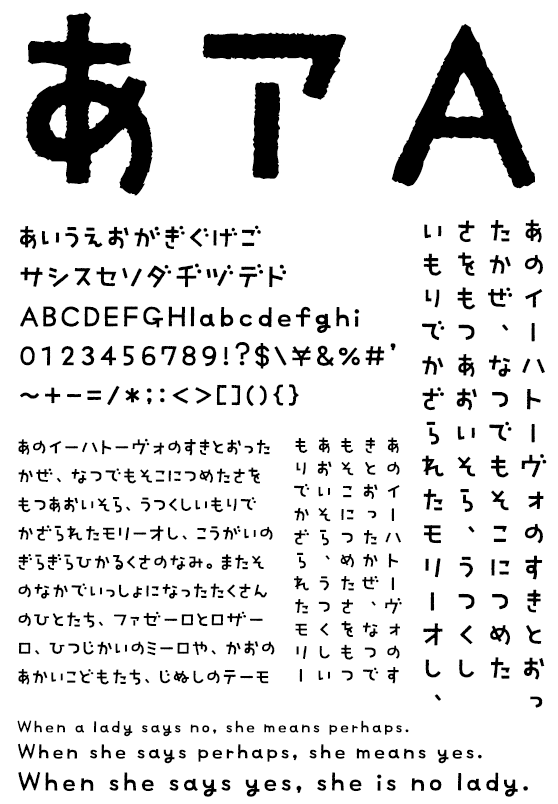 あアA
あいうえおがぎぐげご
サシスセソダヂヅデド
ABCDEFGHIabcdefghi
0123456789!?$\¥&%#'
~+-=/*;:<>[](){}
あのイーハトーヴォのすきとおっ
たかぜ、なつでもそこにつめた
さをもつあおいそら、うつくし
いもりでかざられたモリーオし、
あのイーハトーヴォのすきとおった
かぜ、なつでもそこにつめたさを
もつあおいそら、うつくしいもりで
かざられたモリーオし、こうがいの
ぎらぎらひかるくさのなみ。またそ
のなかでいっしょになったたくさん
のひとたち、ファゼーロとロザー
ロ、ひつじかいのミーロや、かおの
あかいこどもたち、じぬしのテーモ
あのイーハトーヴォのす
きとおったかぜ、なつで
もそこにつめたさをもつ
あおいそら、うつくしい
もりでかざられたモリー
When a lady says no, she means perhaps.
When she says perhaps, she means yes.
When she says yes, she is no lady.